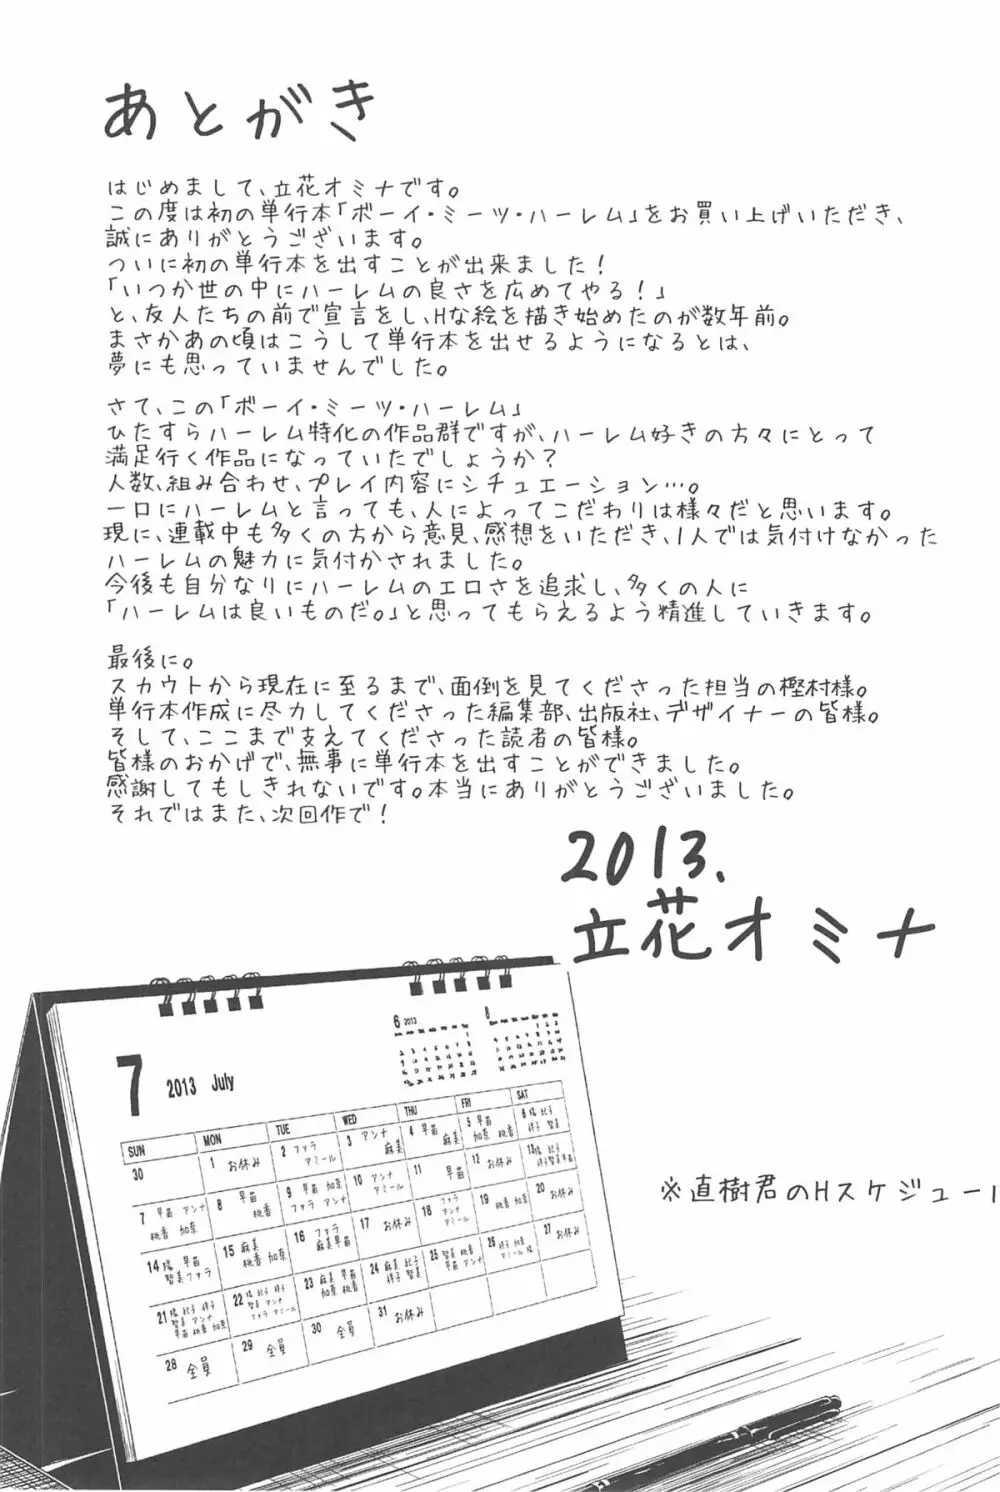 あとがき
はじめまして、立花オミナです。
この度は初の単行本「ボーイ・ミーツ・ハーレム」をお買い上げいただき、
誠にありがとうございます。
ついに初の単行本を出すことが出来ました！
「いつか世の中にハーレムの良さを広めてやる！」
と、友人たちの前で宣言をし、Hな絵を描き始めたのが数年前。
まさかあの頃はこうして単行本を出せるようになるとは、
夢にも思っていませんでした。
さて、この「ボーイ・ミーツ・ハーレム」
ひたすらハーレム特化の作品群ですが、ハーレム好きの方々にとって
満足行く作品になっていたでしょうか？
人数、組み合わせ、プレイ内容にシチュエーション…。
一口にハーレムと言っても、人によってこだわりは様々だと思います。
現に、連載中も多くの方から意見、感想をいただき、1人では気付けなかった
ハーレムの魅力に気付かされました。
今後も自分なりにハーレムのエロさを追求し、多くの人に
「ハーレムは良いものだ。」と思ってもらえるよう精進していきます。
最後に。
スカウトから現在に至るまで、面倒を見てくださった担当の樫村様。
単行本作成に尽力してくださった編集部、出版社、デザイナーの皆様。
そして、ここまで支えてくださった読者の皆様。
皆様のおかげで、無事に単行本を出すことができました。
感謝してもしきれないです。本当にありがとうございました。
それではまた、次回作で！
2013.
立花オミナ
6 2013
8
7 2013 July
SUN MON TUE WED THU FRI SAT
30 1 お休み 2 ファラ アミール 3 アンナ 麻美 4 早苗 麻美 5 早苗 加奈 桃香 6
7 早苗 アンナ 桃香 加奈 8 早苗 桃香 9 早苗 加奈 ファラ アンナ 10 アンナ アミール 11 早苗 12 お休み 13
14 早苗 智美 ファラ 15 麻美 桃香 加奈 16 ファラ 麻美 早苗 17 お休み 18 ファラ アンナ アミール 19 桃香 加奈 20 お休み
21 22 23 麻美 早苗 加奈 桃香 24 25 26 27 お休み
28 全員 29 全員 30 全員 31 お休み
※直樹君のHスケジュール